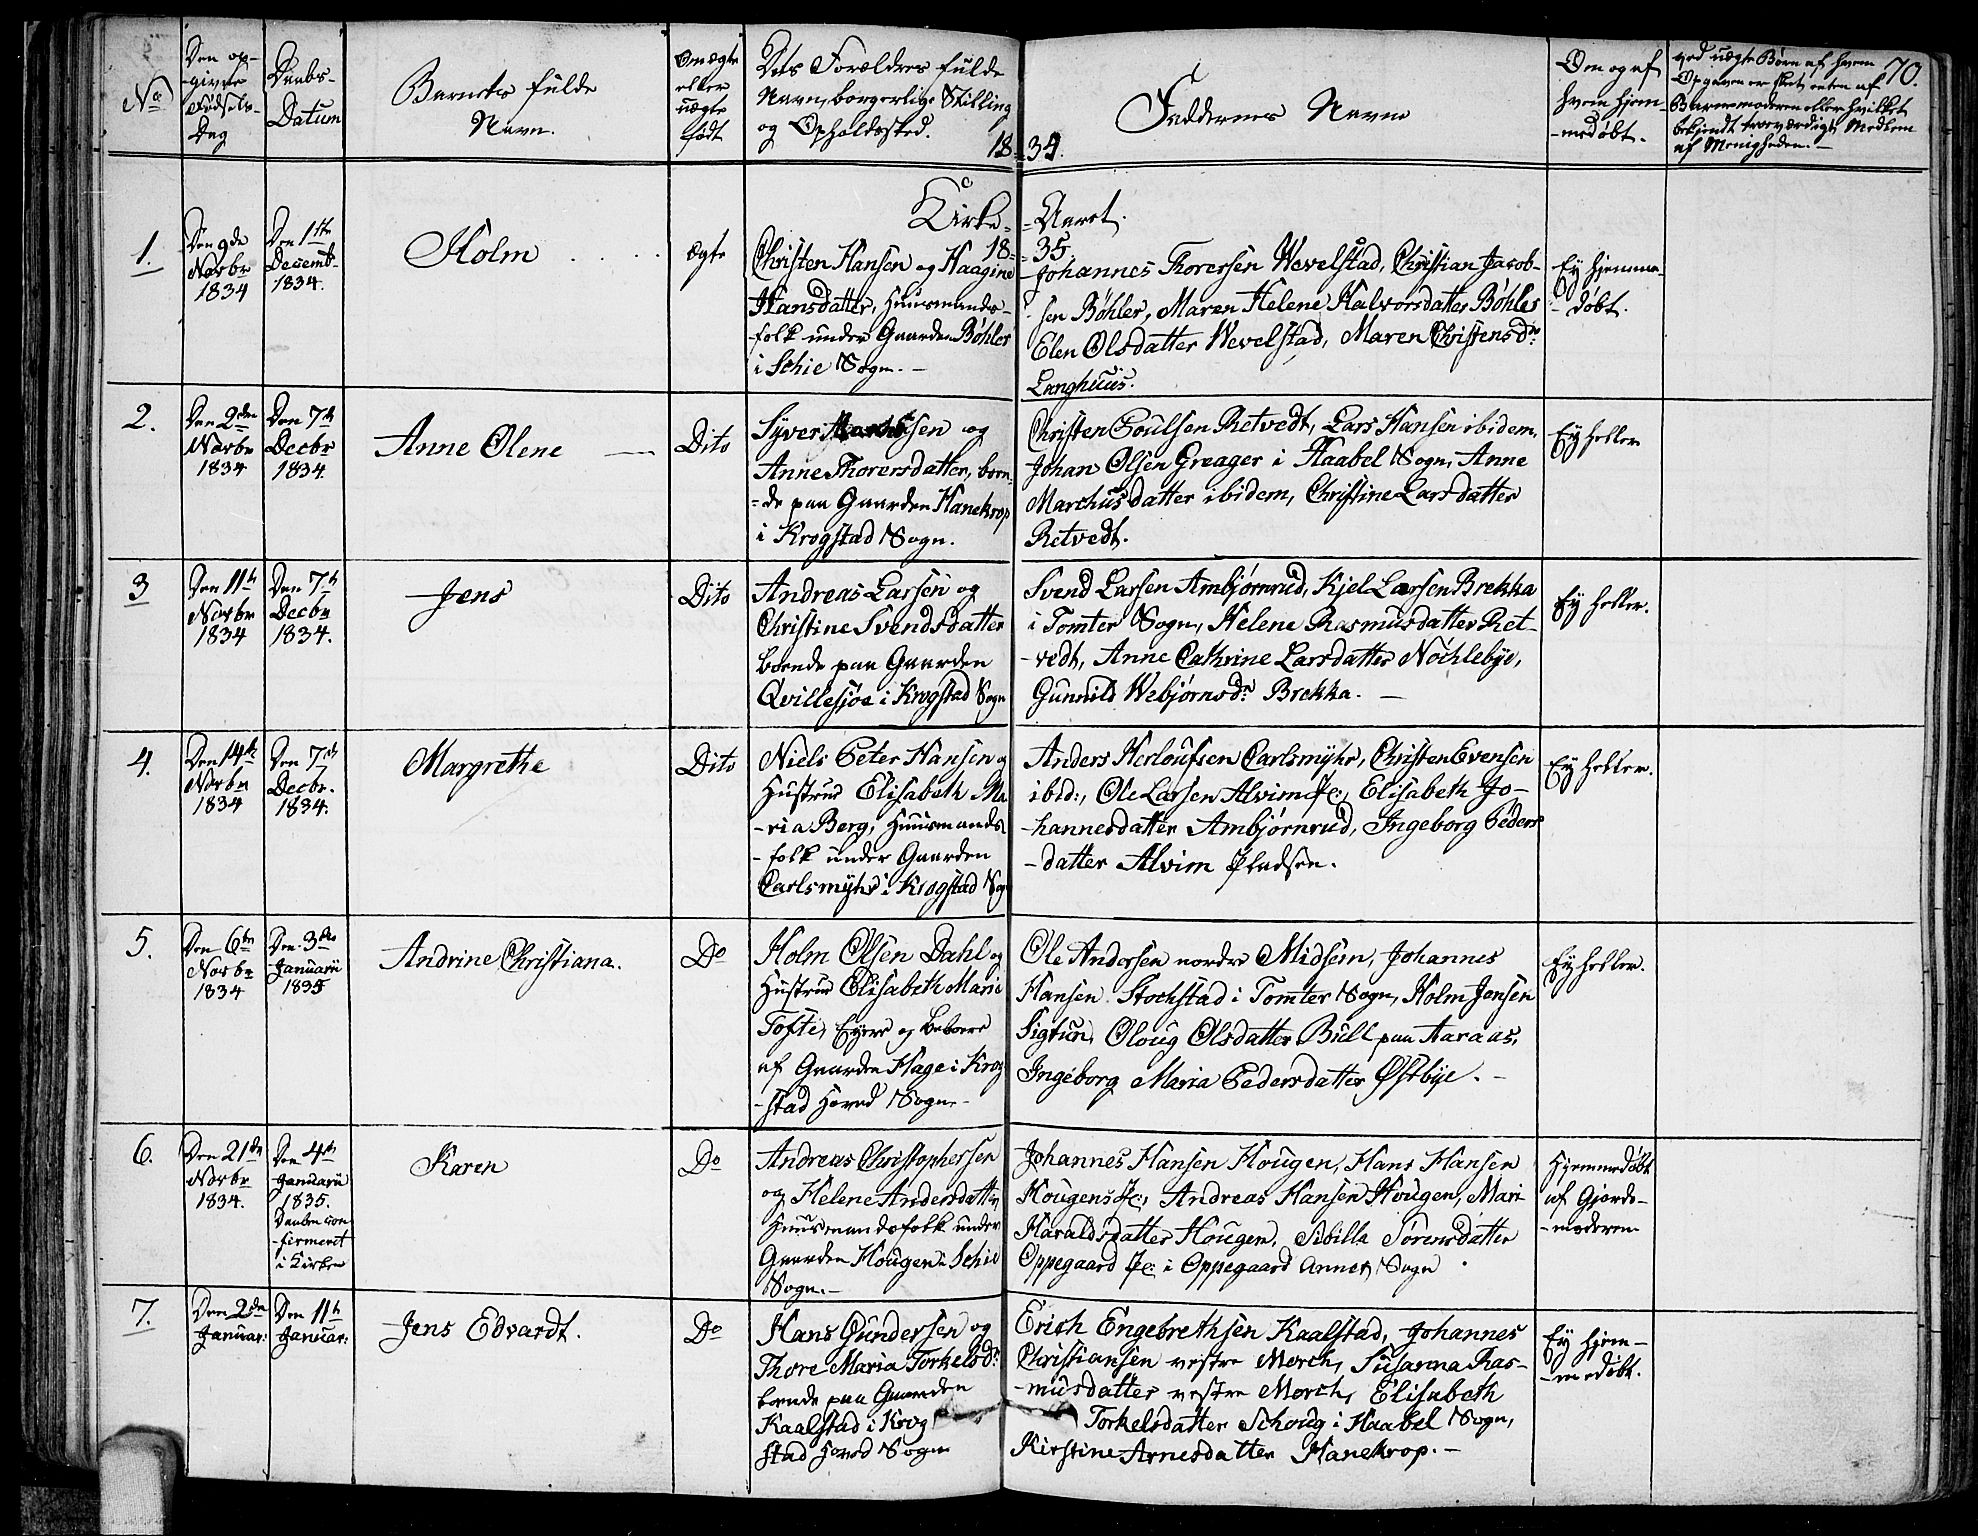 70.
No
Den op-
-givne
Fødsels-
Dag
Daabs-
Datum
Barnets fulde
Navn.
Om ægte
eller
uægte
født
Dets Forældres fulde
Navn, borgerlige Stilling
og Opholdssted.
Faddernes Navne
Om og af
hvem hjem-
-medøbt.
ved uægte Børn af hvem
Opgaven er skeet enten af
Barnemoderen eller hvilket
bekjendt troeværdigt Medlem
af Menigheden.-
18-34.
Kirke-Aaret.
18-35.
1.
Den 9de
Novbr
1834
Den 1ste
Decemb-
1834.
Holm
ægte
Christen Hansen og Haagine
Hansdatter, Huusmands-
-folk under Gaarden Bøhler
i Schie Sogn.-
Johannes Thorersen Wevelstad, Christian Jacob-
-sen Bøhler, Maren Helene Halvorsdatter Bøhler
Elen Olsdatter Wevelstad, Maren Christensdr
Langhuus.
Ey hjemme-
-døbt.
2.
Den 2den
Novbr
1834
Den 7de
Decbr
1834.
Anne Olene
Dito
Syver sen og
Anne Thorersdatter, boen-
-de paa Gaarden Hanekrop
i Krogstad Sogn.
Christen Poulsen Retvedt, Lars Hansen ibidem.
Johan Olsen Greager i Haabel Sogn, Anne
Marchusdatter ibidem, Christine Larsdatter
Retvedt.
Ey heller
3
Den 11te
Novbr
1834
Den 7de
Decbr
1834.
Jens
Dito
Andreas Larsen og
Christine Svendsdatter
boende paa Gaarden
Qvillesjøe i Krogstad Sogn
Svend Larsen Ambjørnrud, Kjel Larsen Brekka
i Tomter Sogn, Helene Rasmusdatter Ret-
-vedt, Anne Cathrine Larsdatter Nøchlebye,
Gunnild Webjørnsdr Brekka.-
Ey heller.
4.
Den 14de
Novbr
1834
Den 7de
Decbr.
1834.
Margrethe
Dito
Niels Peter Hansen og
Hustrue Elisabeth Ma
-ria Berg, Huusmands
-folk under Gaarden
Carlsmyhr i Krogstad Sogn
Anders Herloufsen Carlsmyhr, Christen Evensen
ibid:, Ole Larsen Alvim Pl:, Elisabeth Jo-
-hannesdatter Ambjørnrud, Ingeborg Peders
-datter Alvim Pladsen.
Ey heller.
5.
Den 6te
Novbr
1834
Den 3die
Januarii
1835
Andrine Christiana.
Do
Holm Olsen Dahl og
Hustrue Elisabeth Marie
Tofte, Eyere og Beboere
af Gaarden Hage i Krog
-stad Hoved Sogn.-
Ole Andersen nordre Midsem, Johannes
Hansen Stochstad i Tomter Sogn, Holm Jensen
Sigtun, Oloug Olsdatter Bull paa Aaraas,
Ingeborg Maria Pedersdatter Østbye.-
Ey heller.
6.
Den 21de
Novbr
1834.
Den 4de
Januarii
1835.
Daaben con
-firmeret
i Kirken
Karen
Do
Andreas Christophersen
og Helene Andersdatter,
Huusmandsfolk under
Gaarden Hougen i Schie
Sogn.-
Johannes Hansen Hougen, Hans Hansen
Hougens Pl:, Andreas Hansen Hougen, Mari
Haraldsdatter Hougen, Sibilla Sørensdatter
Oppegaard Pl: i Oppegaard Annex Sogn
Hjemmedøbt
af Gjorde-
-moderen
7.
Den 2den
Januar:
Den 11te
Januar:
Jens Edvardt.
Do
Hans Gundersen og
Thore Maria Torkelsdr
boende paa Gaarden
Kaalstad i Krog
stad Hoved Sogn
Erich Engebrethsen Kaalstad, Johannes
Christiansen vestre Morch, Susanna Ras-
-musdatter vestre Morch, Elisabeth
Torkelsdatter Schoug i Haabel Sogn,
Kirstine Arnesdatter Hanekrop.-
Ey hjem-
-medøbt.